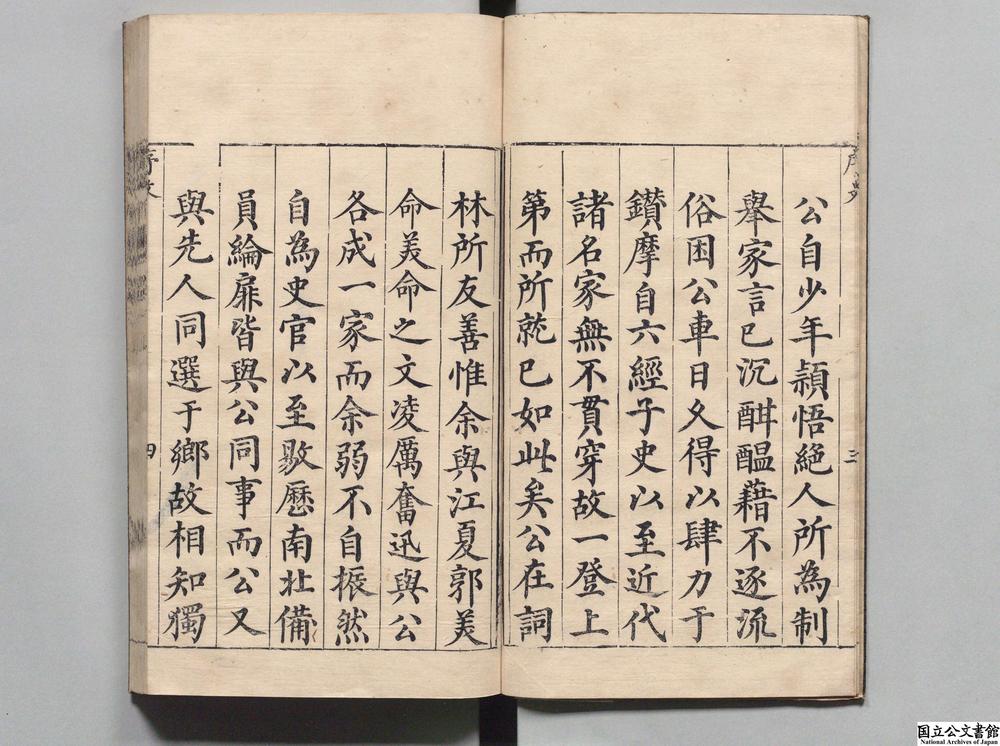 公自少年穎悟絕人所為制
舉家言已沉酣醞藉不逐流
俗困公車日久得以肆力于
鑚摩自六經子史以至近代
諸名家無不貫穿故一登上
第而所就已如此矣公在詞
林所友善惟余與江夏郭美
命美命之文凌厲奮迅與公
各成一家而余弱不自振然
自為史官以至敭歷南北備
員綸扉皆與公同事而公又
與先人同選于鄉故相知獨
三
四
国立公文書館
National Archives of Japan